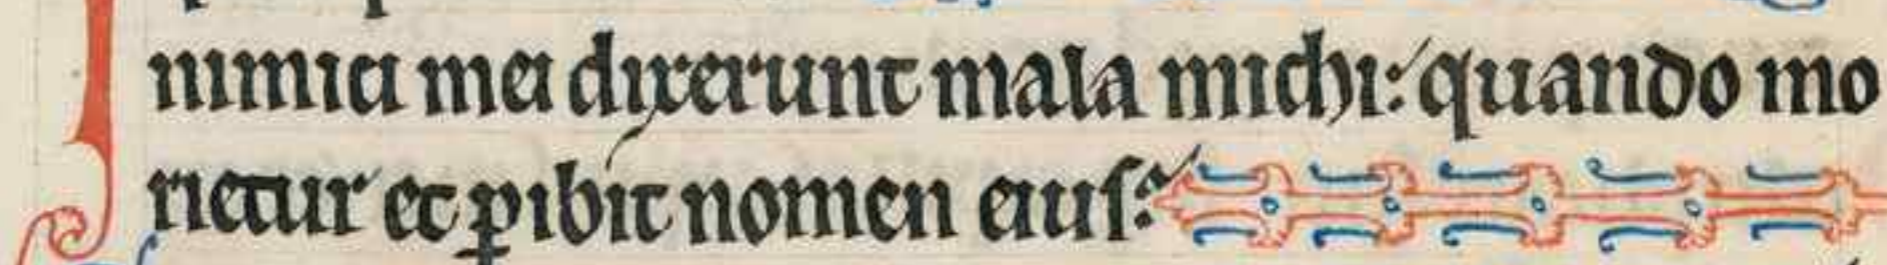 Inimici mei dixerunt mala michi: quando mo
rietur et ꝑibit nomen eius: